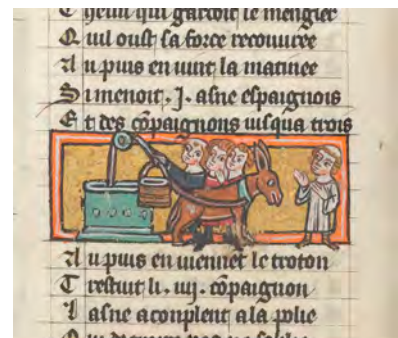 C helui qui gardoit le mengier
Q uil oust sa force recouuree
A u puis en uint la matinee
S i menoit .J. asne espaignois
E t des cōpaignons iusqua trois
A u puis en uiennet le troton
T restuit li .iiij. cōpaignon
L asne acouplent a la polie